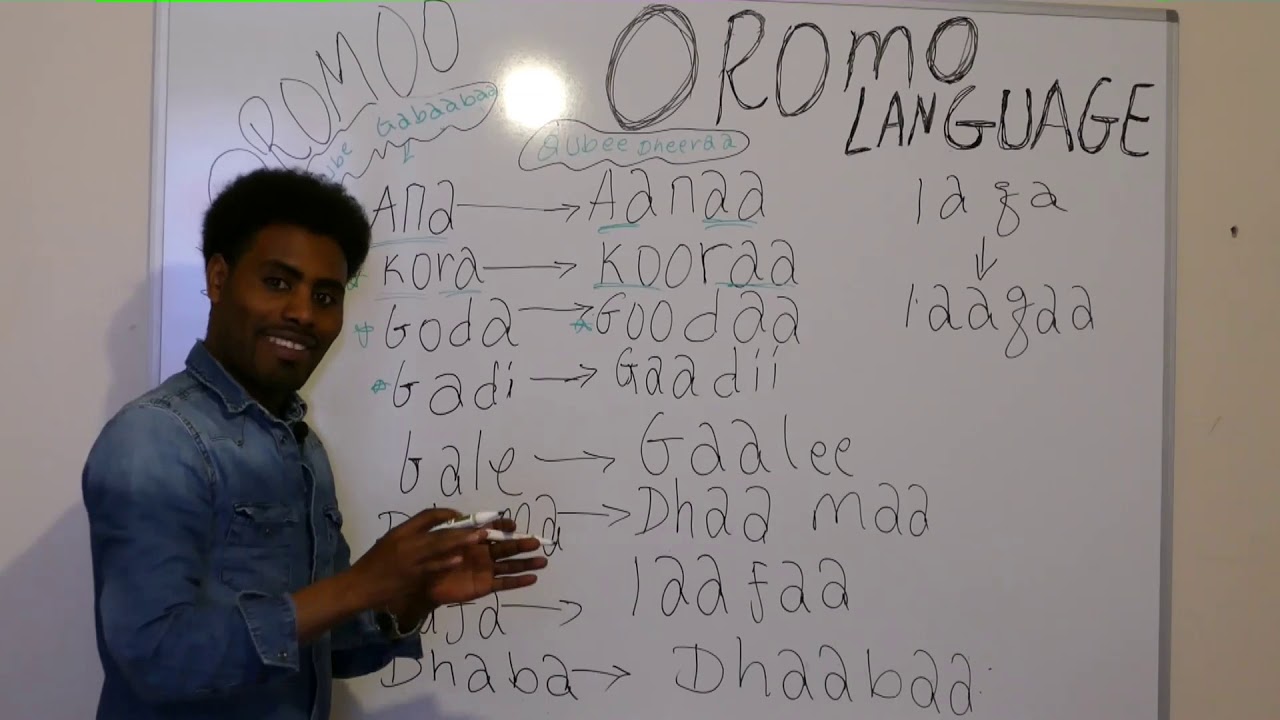 OROMOO
OROMO
LANGUAGE
Gabaabaa
Qubee Dheeraa
Ana → Aanaa
Kora → Kooraa
Goda → Goodaa
Gadi → Gaadii
Gale → Gaalee
→ Dhaa maa
→ laafaa
Dhaba → Dhaabaa
laga
↓
laagaa